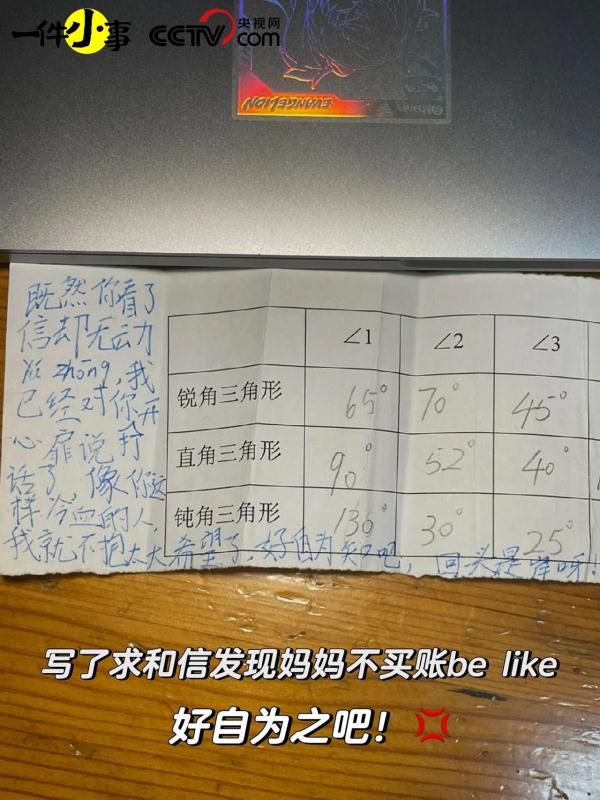 一件小事 CCTV.com 央视网
EVANGELION
既然你看了
信却无动
yú zhōng,我
已经对你开
心扉说打
话了,像你这
样冷血的人,
我就不抱太大希望了,好自为知吧,回头是岸呀!
∠1 ∠2 ∠3
锐角三角形 65° 70° 45°
直角三角形 90° 52° 40°
钝角三角形 130° 30° 25°
写了求和信发现妈妈不买账be like
好自为之吧!